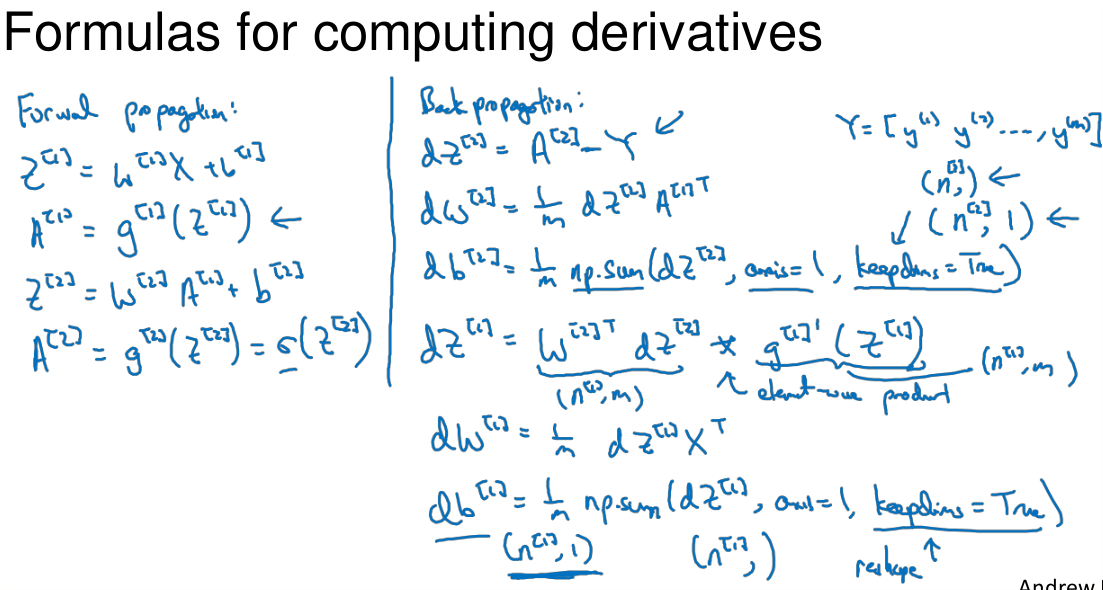 Formulas for computing derivatives
Forward propagation:
Z^[1] = W^[1] X + b^[1]
A^[1] = g^[1](Z^[1]) ←
Z^[2] = W^[2] A^[1] + b^[2]
A^[2] = g^[2](Z^[2]) = σ(Z^[2])
Back propagation:
dZ^[2] = A^[2] - Y ↙
dW^[2] = 1/m dZ^[2] A^[1]T
db^[2] = 1/m np.sum(dZ^[2], axis=1, keepdims=True)
dZ^[1] = W^[2]T dZ^[2] * g^[1]'(Z^[1])
(n^[1], m)
↑ element-wise product
(n^[1], m)
dW^[1] = 1/m dZ^[1] X^T
db^[1] = 1/m np.sum(dZ^[1], axis=1, keepdims=True)
(n^[1], 1) (n^[1],) reshape ↑
Y = [y^(1) y^(2) ..., y^(m)]
(n^[2],) ←
↙ (n^[2], 1) ←
Andrew